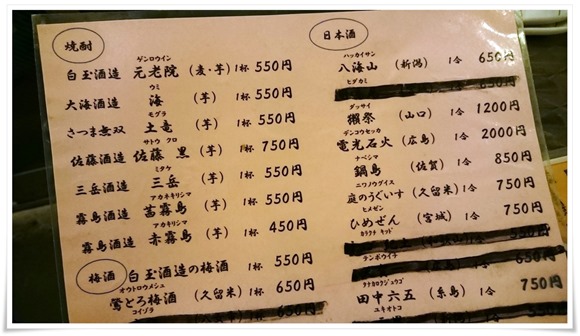 焼酎
ゲンロウイン
白玉酒造 元老院 (麦・芋) 1杯 550円
ウミ
大海酒造 海 (芋) 1杯 550円
モグラ
さつま無双 土竜 (芋) 1杯 550円
サトウ クロ
佐藤酒造 佐藤 黒 (芋) 1杯 750円
ミタケ
三岳酒造 三岳 (芋) 1杯 550円
アカネキリシマ
霧島酒造 茜霧島 (芋) 1杯 550円
アカキリシマ
霧島酒造 赤霧島 (芋) 1杯 450円
梅酒
白玉酒造の梅酒 1杯 550円
オウトロウメシュ
鶯とろ梅酒 (久留米) 1杯 650円
コイゾラ
650円
日本酒
ハッカイサン
八海山 (新潟) 1合 650円
ヒダカミ
ダッサイ
獺祭 (山口) 1合 1200円
デンコウセッカ
電光石火 (広島) 1合 2000円
ナベシマ
鍋島 (佐賀) 1合 850円
ニワノウグイス
庭のうぐいす (久留米) 1合 750円
ヒメゼン
ひめぜん (宮城) 1合 750円
カラクチ キッド
テンポウイチ
タナカロクジュウゴ
田中六五 (糸島) 1合 750円
ユキオトコ